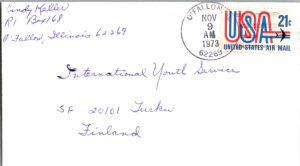 Cindy Keller
R1 Box 168
O'Fallon, Illinois 62269
O'FALLON
NOV
9
AM
1973
62269
21c
USA
UNITED STATES AIR MAIL
International Youth Service
SF 20101 Turku
Finland